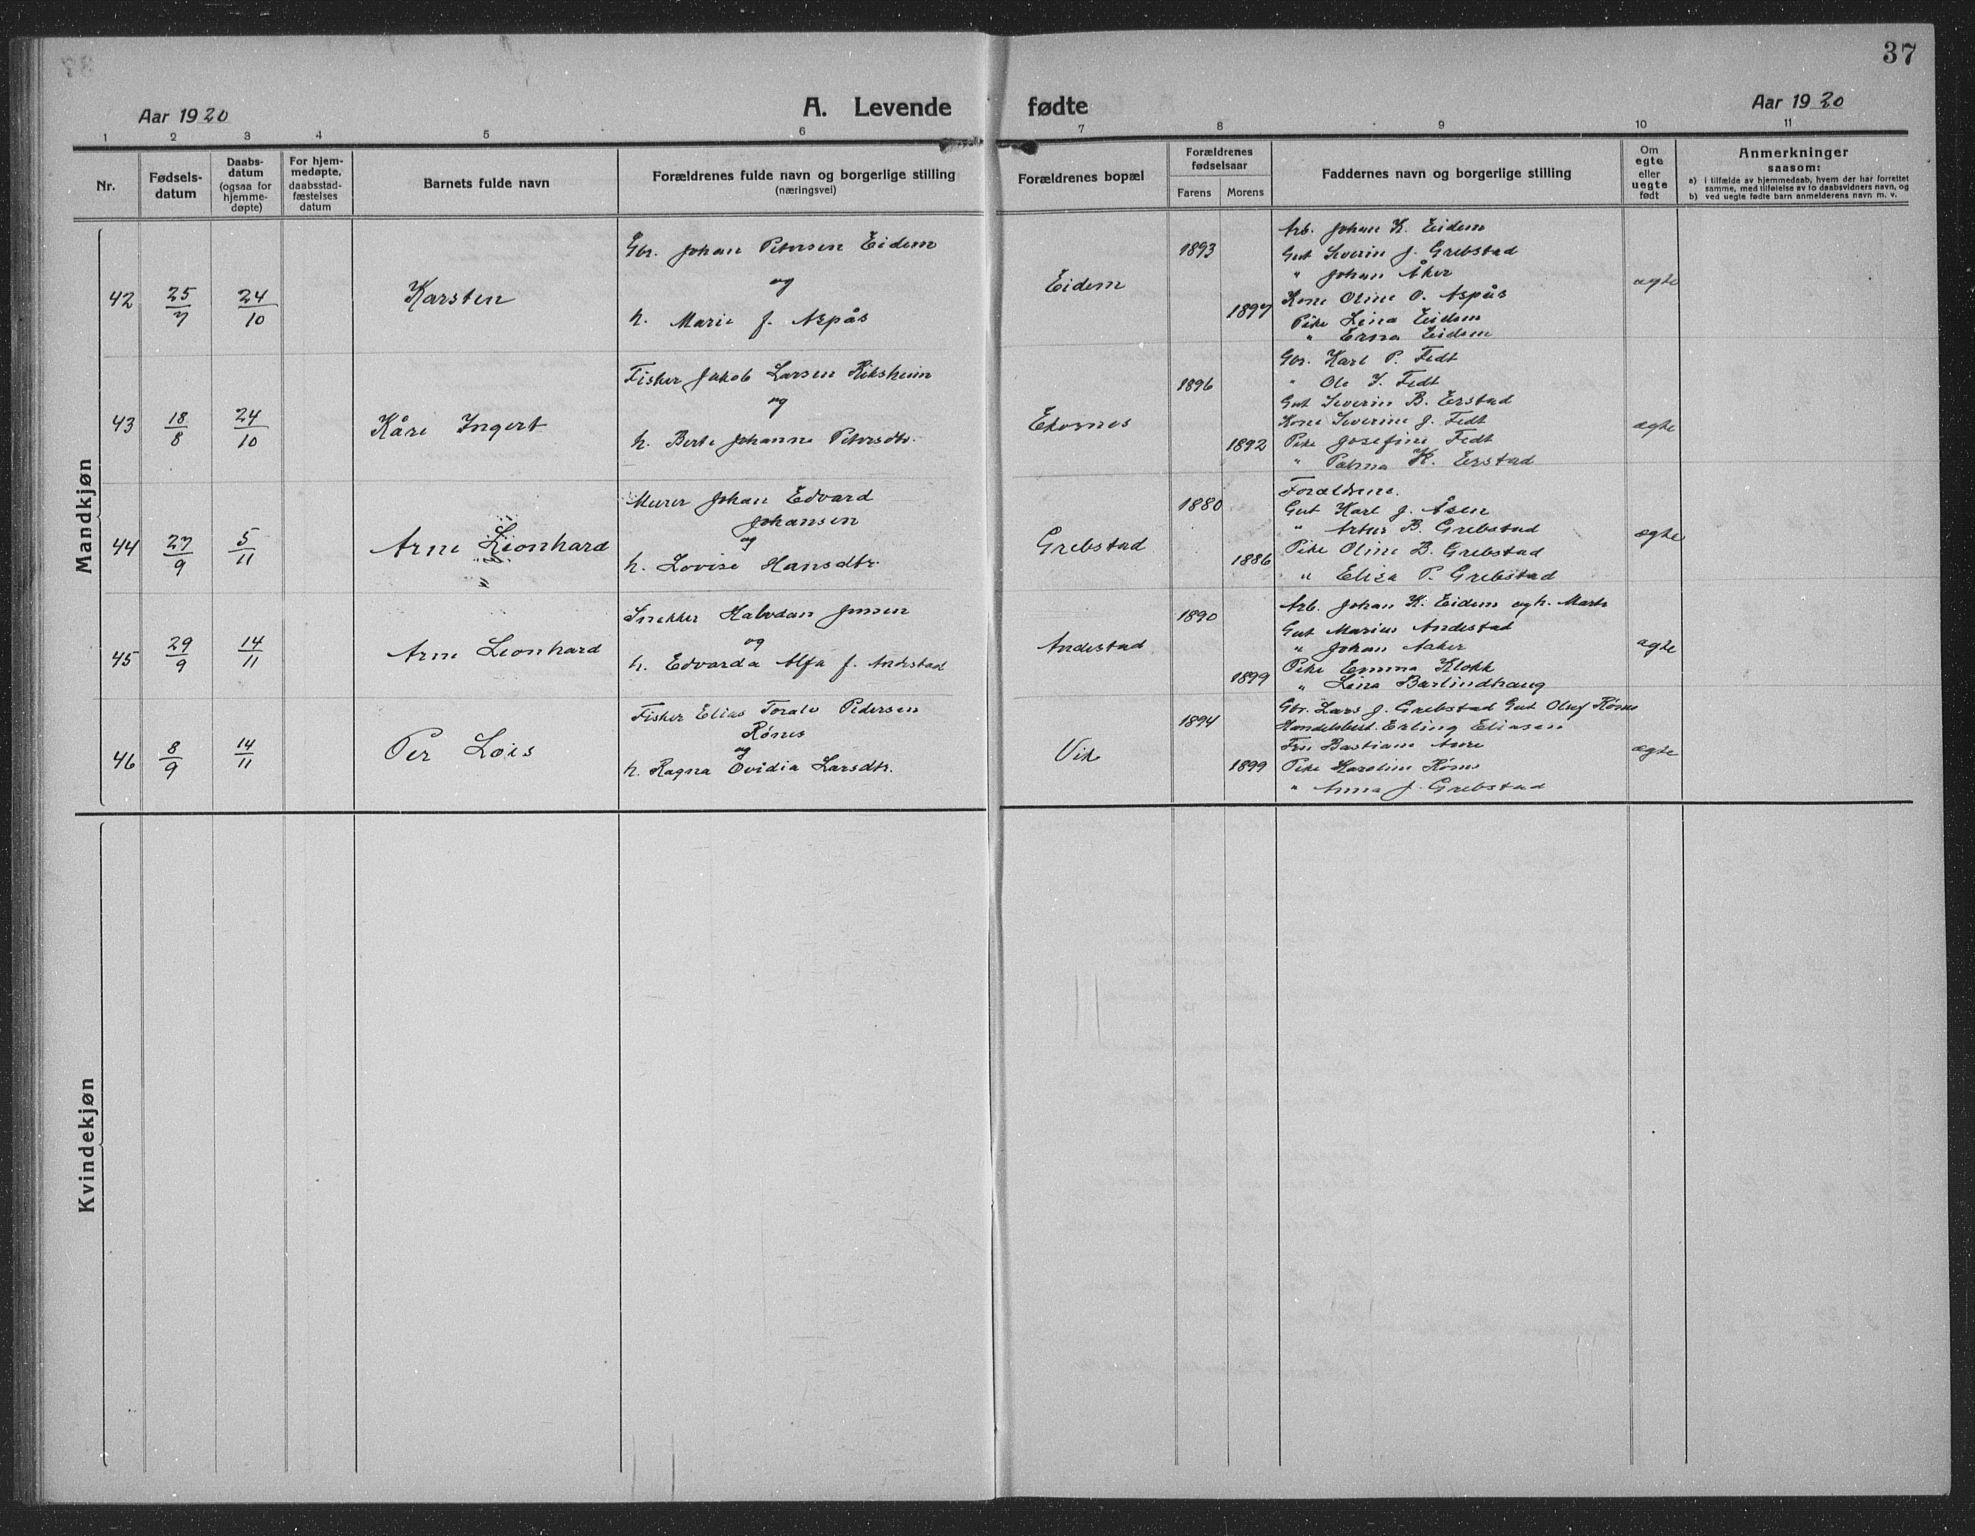 37
Aar 1920
A. Levende fødte
Aar 1920
1 2 3 4 5 6 7 8 9 10 11
Nr.
Fødsels-
datum
Daabs-
datum
(ogsaa for
hjemme-
døpte)
For hjem-
medøpte,
daabsstad-
fæstelses
datum
Barnets fulde navn
Forældrenes fulde navn og borgerlige stilling
(næringsvei)
Forældrenes bopæl
Forældrenes
fødselsaar
Farens Morens
Faddernes navn og borgerlige stilling
Om
egte
eller
uegte
født
Anmerkninger
saasom:
a) i tilfælde av hjemmedaab, hvem der har forrettet
samme, med tilføielse av to daabsvidners navn, og
b) ved uegte fødte barn anmelderens navn m. v.
Mandkjøn
42 25/7 24/10 Karsten
Gbr. Johan Petersen Eidem
og
h. Marie J. Aspås
Eidem
1893
1897
Arb. Johan K. Eidem
Gut Severin J. Grebstad
" Johan Åker
Kone Oline O. Aspås
Pike Lina Eidem
" Erna Eidem
ægte
43 18/8 24/10 Kåre Ingert
Fisker Jakob Larsen Riksheim
og
h. Berte Johanne Petersdtr.
Ekornes
1896
1892
Gbr. Karl P. Fedt
" Ole J. Fedt
Gut Severin B. Erstad
Kone Severine J. Fedt
Pike Josefine Fedt
" Palma K. Erstad
ægte
44 27/9 5/11 Arne Leonhard
Murer Johan Edvard
Johansen
og
h. Lovise Hansdtr.
Grebstad
1880
1886
Forældrene.
Gut Karl J. Åsen
" Artur B. Grebstad
Pike Oline B. Grebstad
" Elisa P. Grebstad
ægte
45 29/9 14/11 Arne Leonhard
Snekker Halvdan Jensen
og
h. Edvarda Alfa J. Andestad
Andestad
1890
1899
Arb. Johan K. Eidem og h. Marte
Gut Marius Andestad
" Johan Aaker
Pike Emma Klokk
" Lina Barlindhaug
ægte
46 8/9 14/11 Per Lois
Fisker Elias Toralv Pedersen
Rønes
og
h. Ragna Ovidia Larsdtr.
Vik
1894
1899
Gbr. Lars J. Grebstad Gut Oluf Rønes
Handelsbest. Erling Eliasen
Fru Bastiane Aure
Pike Karoline Rønes
" Anna J. Grebstad
ægte
Kvindekjøn